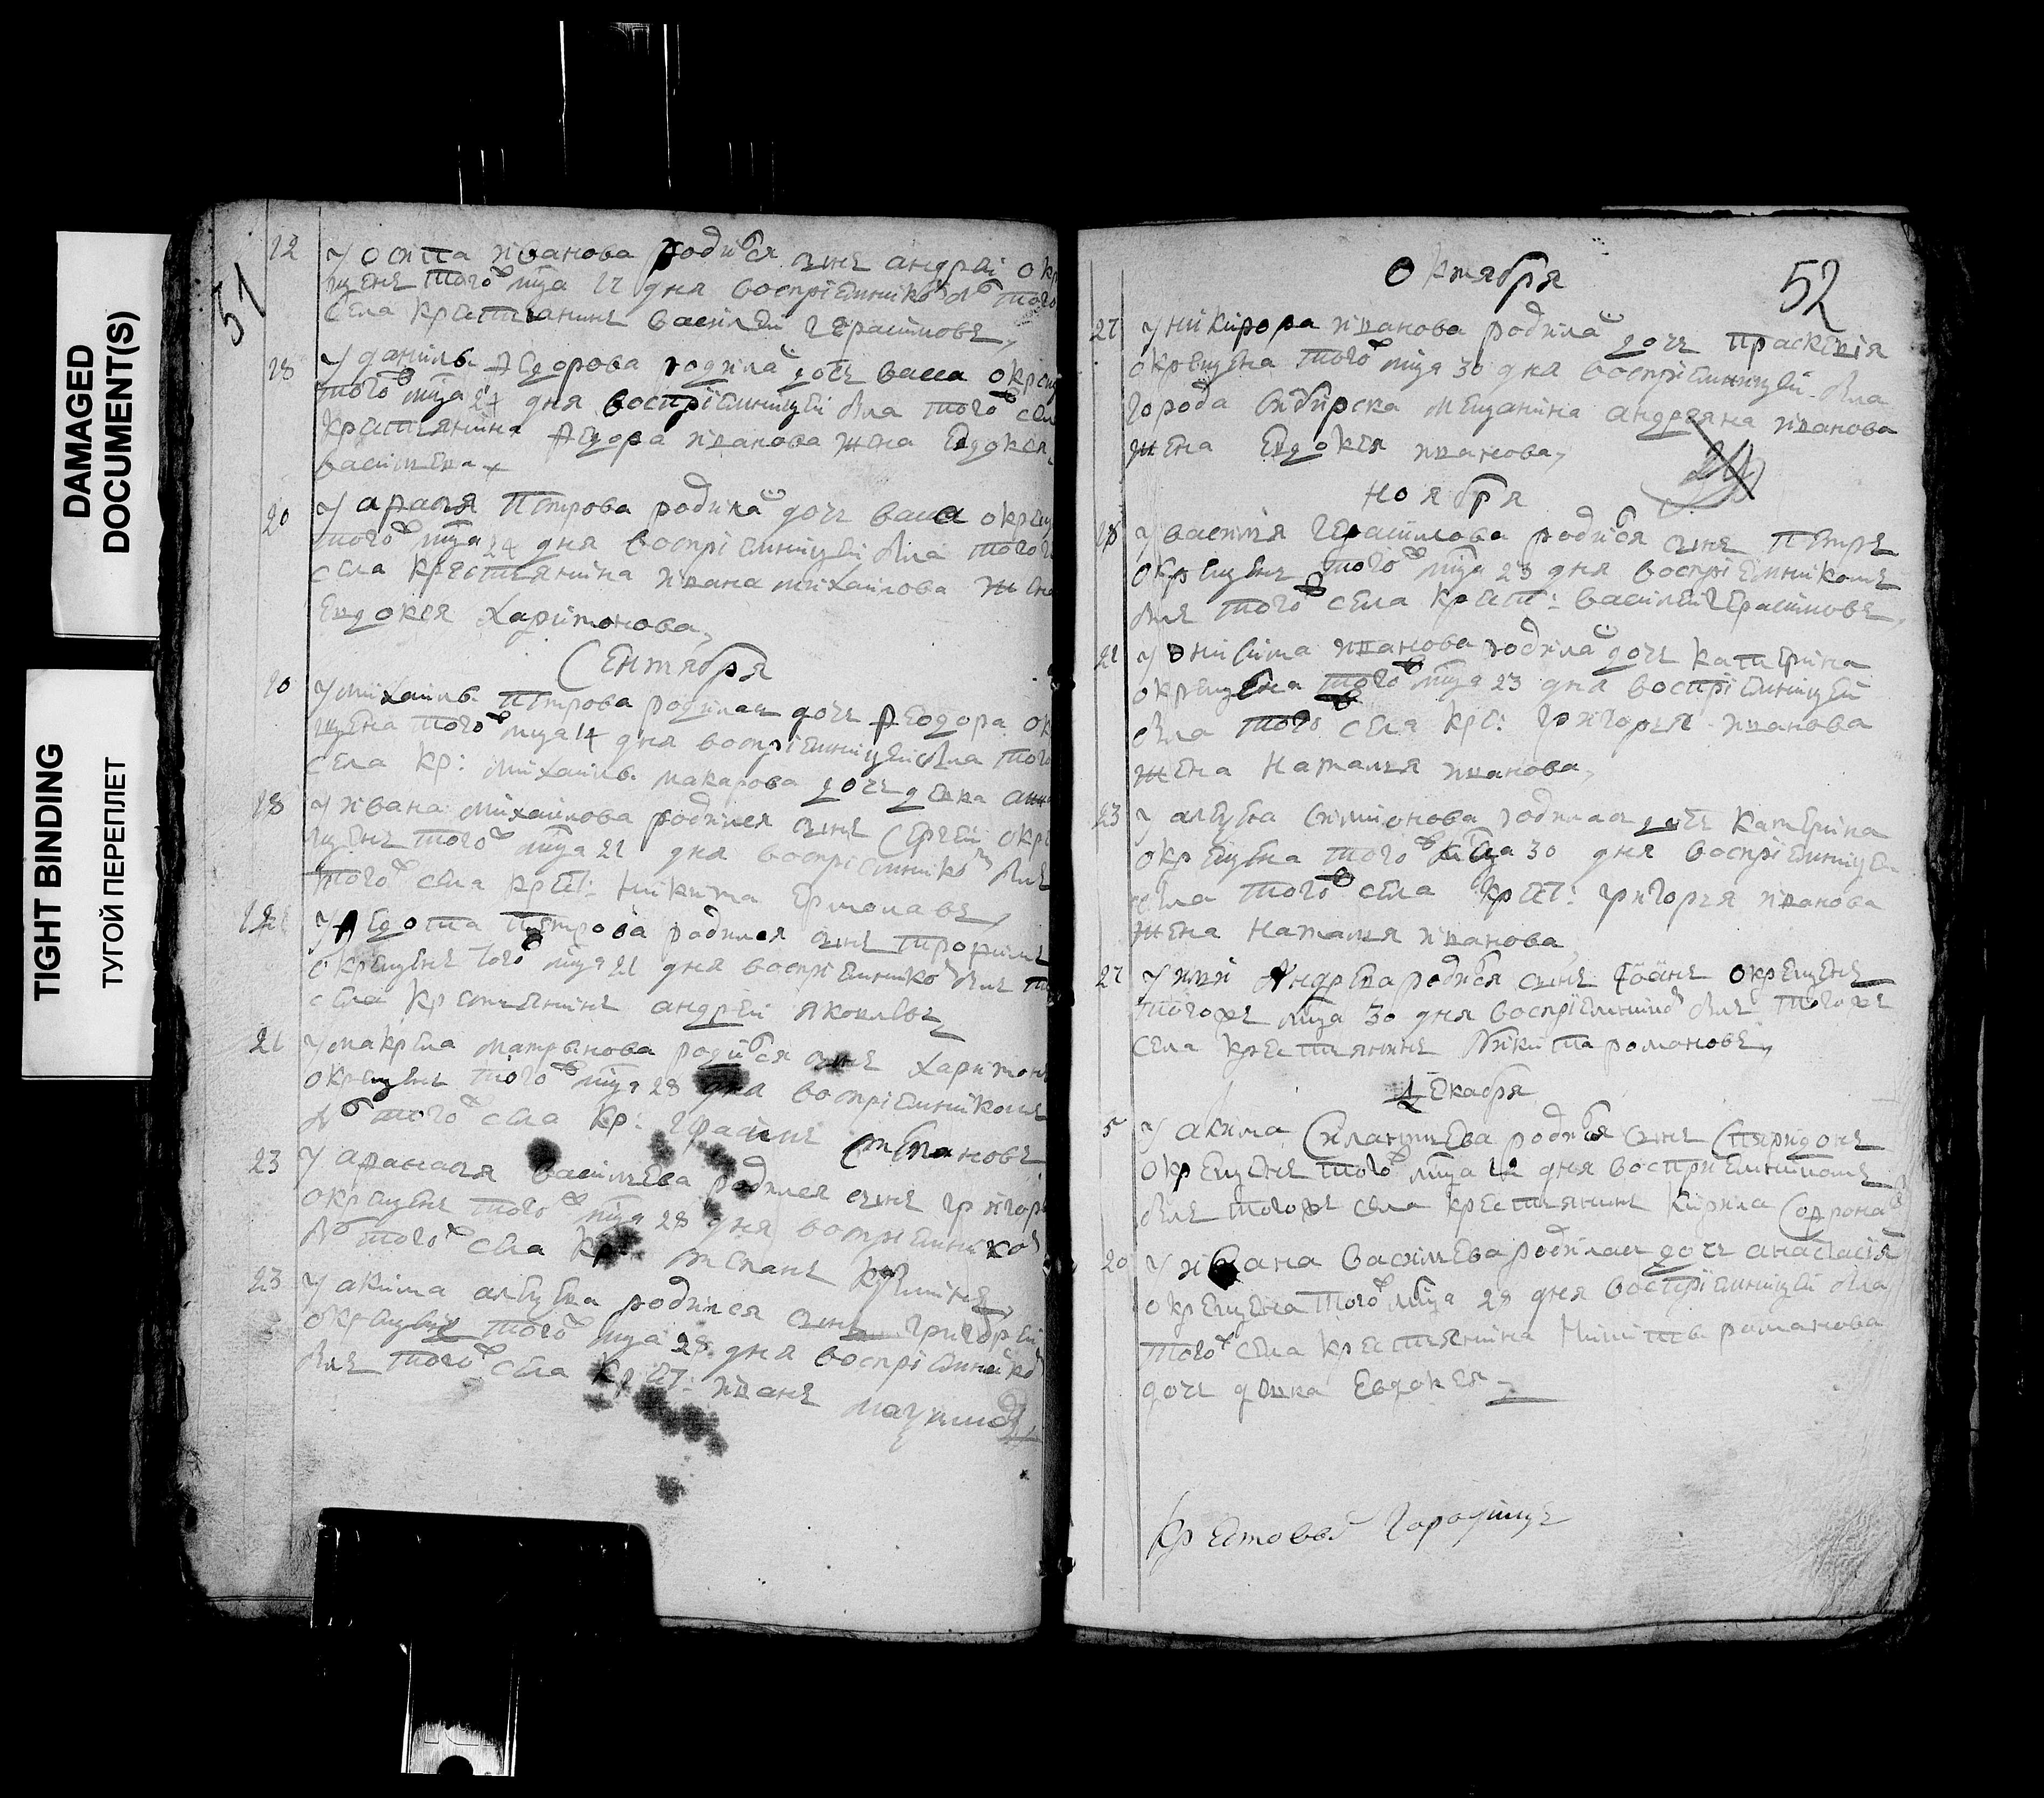 DAMAGED
DOCUMENT(S)
TIGHT BINDING
ТУГОЙ ПЕРЕПЛЕТ
51
12 У осипа иванова родился сынъ андрей окр
щенъ тогоже мца 17 дня воспріемникомъ былъ того
села крестьянинъ василей герасимовъ,
18 У данилы Ѳедорова родилась дочь васса окрещ
тогоже мца 24 дня воспріемницей была тогоже сел
крестьянина Ѳедора иванова жена Евдокея
васильева
20 У арапья петрова родилась дочь васса окрещ
тогоже мца 24 дня воспріемницей была того
села крестьянина ивана михаилова жена
Евдокея Харитонова,
Сентября
10 У михаилы петрова родилась дочь Ѳеодора ок
щена тогоже мца 14 дня воспріемницей была того
села кр: михаилы макарова дочь девка анн
18 У ивана михаилова родился сынъ Сергей окре
щенъ тогоже мца 21 дня воспріемникомъ былъ
тогоже села крест: никита Ермолаевъ,
У Ѳедота петрова родился сынъ трофимъ
окрещенъ тогоже мца 21 дня воспріемникомъ былъ т
села крестьянинъ андрей яковлевъ,
21 У макаела мартынова родился сынъ Харитонъ
окрещенъ тогоже мца 28 дня воспріемникомъ
былъ тогоже села кр: герасимъ Степановъ
23 У афанасья васильева родился сынъ григор
окрещенъ тогоже мца 28 дня воспріемникомъ
былъ тогоже села кр: степанъ кузминъ,
23 У акима алексѣева родился сынъ григорей
окрещенъ тогоже мца 28 дня воспріемникомъ
былъ тогоже села крест: иванъ
52
Октября
27 У никифора иванова родилась дочь праскевія
окрещена тогоже мца 30 дня воспріемницей была
города Симбирска мещанина андреяна иванова
жена Евдокея иванова,
Ноября
18 У василія герасимова родился сынъ петръ
окрещенъ тогоже мца 23 дня воспріемникомъ
былъ тогоже села крест: василей герасимовъ,
21 У онисима иванова родилась дочь катерина
окрещена тогоже мца 23 дня воспріемницей
была тогоже села крс: григорья иванова
жена Наталья иванова,
23 У алексѣя симионова родилась дочь катерина
окрещена тогоже мца 30 дня воспріемницей
была тогоже села крест: григорья иванова
жена Наталья иванова,
27 У ильи Андреева родился сынъ Іоанъ окрещенъ
тогоже мца 30 дня воспріемникомъ былъ тогоже
села крестьянинъ Никита романовъ,
Декабря
5 У акима Силантьева родился сынъ Спиридонъ
окрещенъ тогоже мца 12 дня воспріемникомъ
былъ тогоже села крестьянинъ Кирила Софроновъ
20 У ивана васильева родилась дочь анастасія
окрещена тогоже мца 28 дня воспріемницей была
тогоже села крестьянина Никиты романова
дочь девка Евдокея
Крестовое Городище